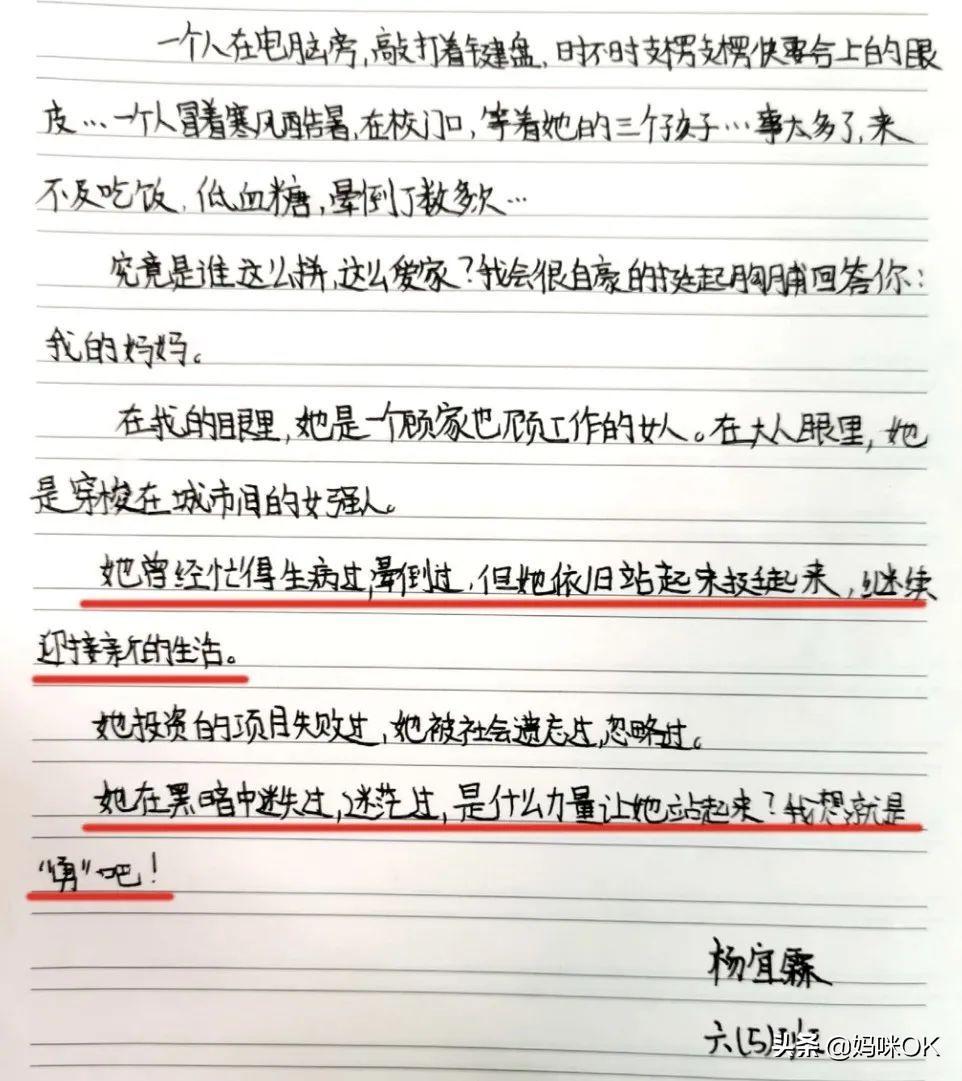 一个人在电脑旁,敲打着键盘,时不时支楞支楞快要合上的眼
皮…一个人冒着寒风酷暑,在校门口,等着她的三个孩子…事太多了,来
不及吃饭,低血糖,晕倒了数多次…
究竟是谁这么拼,这么爱家?我会很自豪的挺起胸脯回答你:
我的妈妈。
在我的眼里,她是一个顾家也顾工作的女人。在大人眼里,她
是穿梭在城市间的女强人。
她曾经忙得生病过,晕倒过,但她依旧站起来挺起来,继续
迎接新的生活。
她投资的项目失败过,她被社会遗忘过,忽略过。
她在黑暗中迷失过,迷茫过,是什么力量让她站起来?我想就是
“勇”吧!
杨宜霖
六(5)班
头条 @妈咪OK